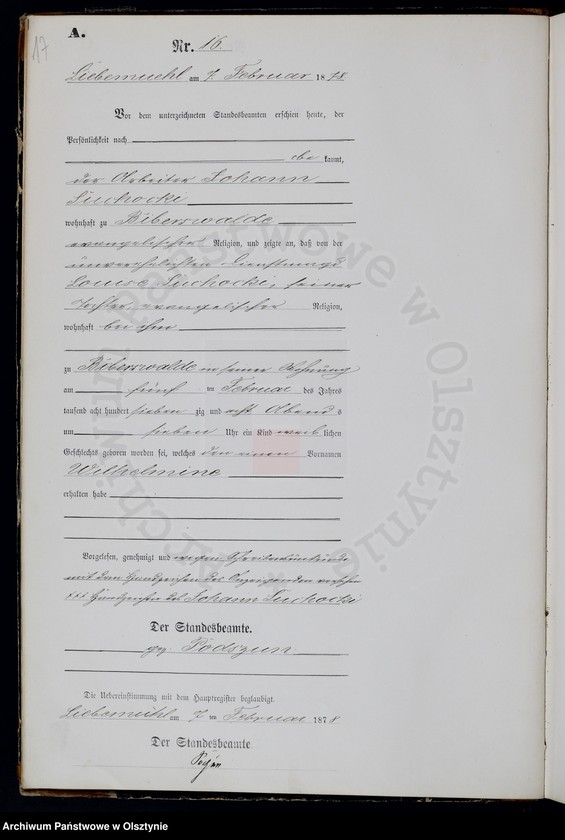 17
A.
Nr. 16.
Liebemuehl am 7. Februar 1878
Vor dem unterzeichneten Standesbeamten erschien heute, der
Persönlichkeit nach
be kannt,
der Arbeiter Johann
Suchocki
wohnhaft zu Biberswalde
evangelischer Religion, und zeigte an, daß von der
unverehelichten Dienstmagd
Louise Suchocki, seiner
Tochter, evangelischer Religion,
wohnhaft bei ihm
zu Biberswalde in seiner Wohnung
am fünf ten Februar des Jahres
tausend acht hundert sieben zig und acht Abend s
um sieben Uhr ein Kind weib lichen
Geschlechts geboren worden sei, welches den einen Vornamen
Wilhelmine
erhalten habe
Vorgelesen, genehmigt und wegen Schreibunkunde
mit dem Handzeichen des Anzeigenden versehen
+++ Handzeichen des Johann Suchocki
Der Standesbeamte.
gez. Podszun
Die Uebereinstimmung mit dem Hauptregister beglaubigt.
Liebemühl am 7 ten Februar 1878
Der Standesbeamte
Archiwum Państwowe w Olsztynie
Archiwum Państwowe w Olsztynie